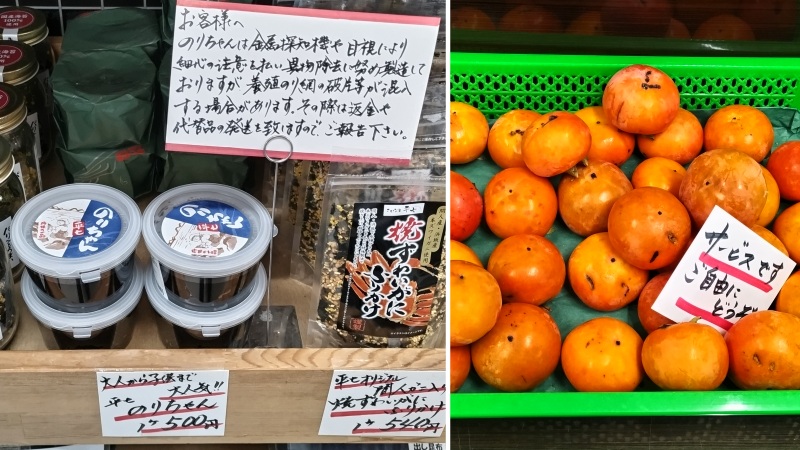 お客様へ
のりちゃんは金属探知機や目視により
細心の注意を払い異物除去に努め製造して
おりますが養殖のり網の破片等が混入
する場合があります。その際は返金や
代替品の発送を致しますので、ご報告下さい。
国産海苔
100%
使用
のりちゃん
平七
のりちゃん
平七
焼ずわいがに
ふりかけ
大人から子供まで
大人気!!
平七
のりちゃん
1ヶ 500円
平七オリジナル
焼ずわいがに
ふりかけ
1ヶ 540円
出し昆布
サービスです
ご自由に
どうぞ